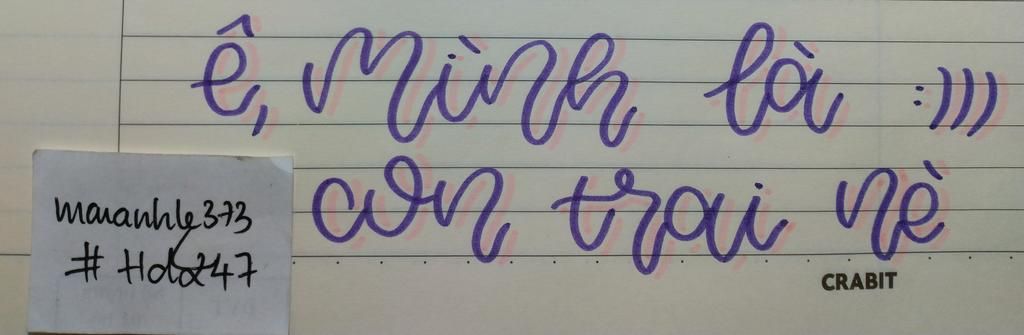 ê, mình là :)))
con trai nè
maianhle373
# Hdz247
CRABIT